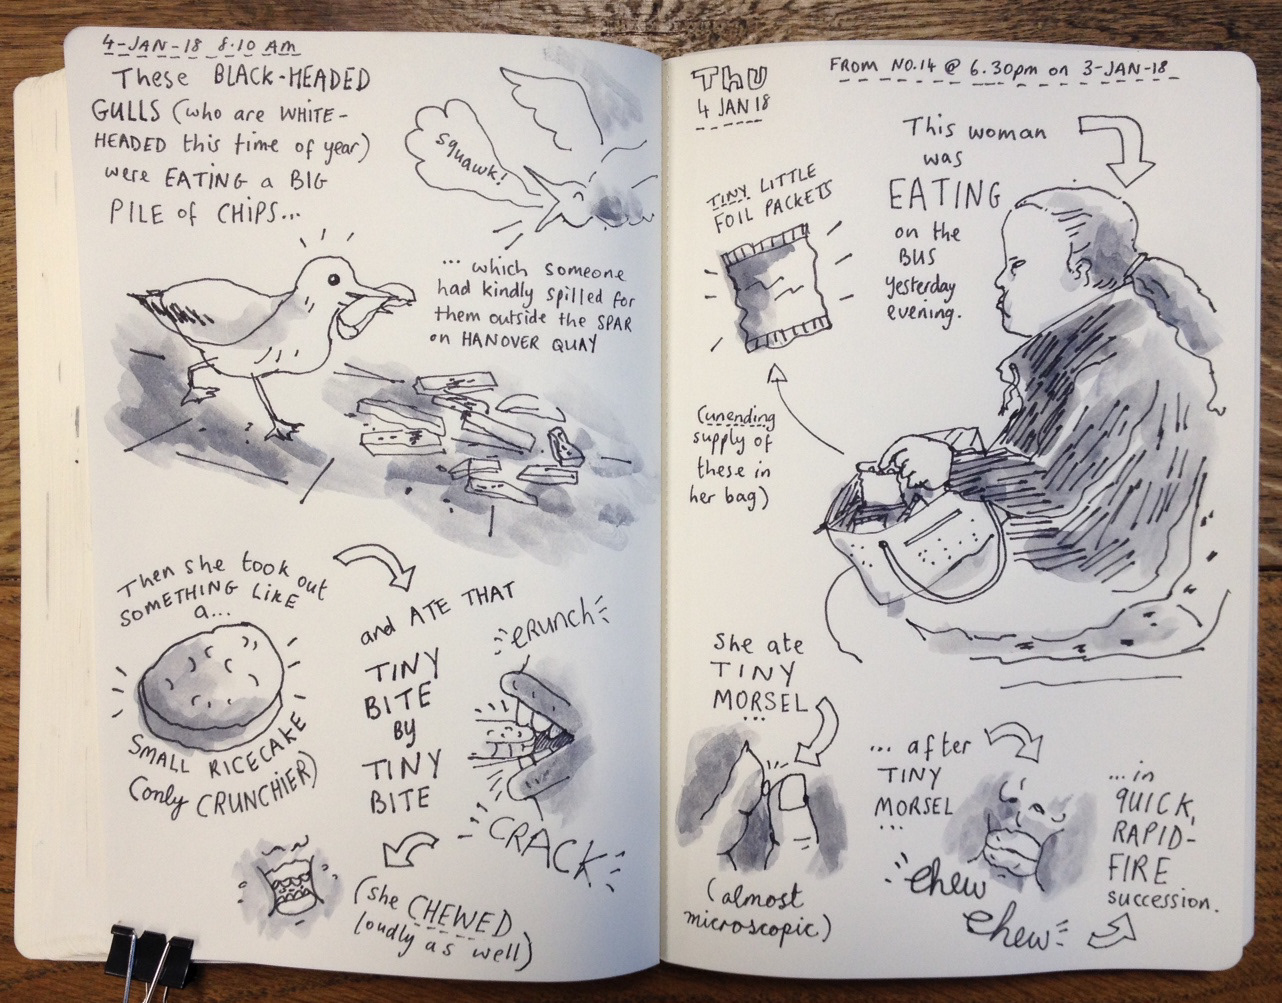 4-JAN-18 8.10 AM
These BLACK-HEADED
GULLS (who are WHITE-
HEADED this time of year)
were EATING a BIG
PILE of CHIPS...
Squawk!
... which someone
had kindly spilled for
them outside the SPAR
on HANOVER QUAY
Then she took out
SOMETHING LIKE
a...
SMALL RICECAKE
(only CRUNCHIER)
and ATE THAT
TINY
BITE
by
TINY
BITE
CRUNCH
CRACK
(she CHEWED
loudly as well)
THU
4 JAN 18
FROM NO.14 @ 6.30pm on 3-JAN-18
This woman
was
EATING
on the
BUS
yesterday
evening.
TINY LITTLE
FOIL PACKETS
(unending
supply of
these in
her bag)
She ate
TINY
MORSEL
...
(almost
microscopic)
... after
TINY
MORSEL
...
chew
chew
...in
QUICK,
RAPID-
FIRE
succession.